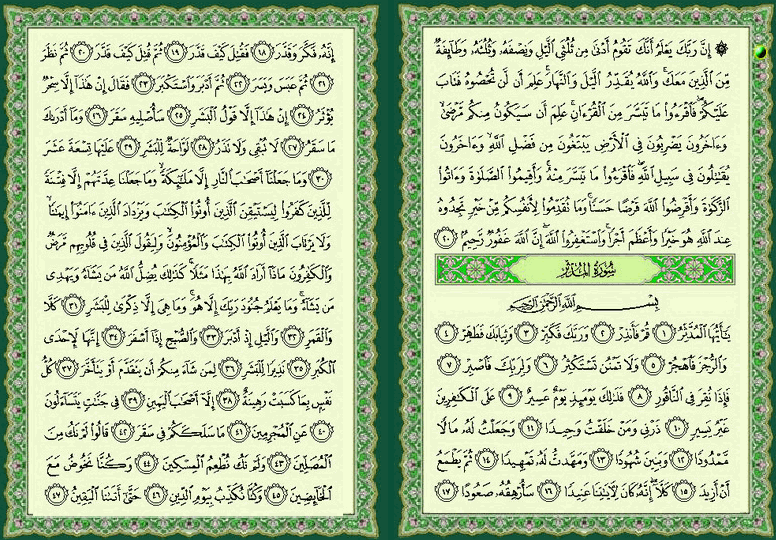 ۞ إِنَّ رَبَّكَ يَعْلَمُ أَنَّكَ تَقُومُ أَدْنَىٰ مِن ثُلُثَىِ ٱلَّيْلِ وَنِصْفَهُۥ وَثُلُثَهُۥ وَطَآئِفَةٌ
مِّنَ ٱلَّذِينَ مَعَكَ ۚ وَٱللَّهُ يُقَدِّرُ ٱلَّيْلَ وَٱلنَّهَارَ ۚ عَلِمَ أَن لَّن تُحْصُوهُ فَتَابَ
عَلَيْكُمْ ۖ فَٱقْرَءُوا۟ مَا تَيَسَّرَ مِنَ ٱلْقُرْءَانِ ۚ عَلِمَ أَن سَيَكُونُ مِنكُم مَّرْضَىٰ ۙ
وَءَاخَرُونَ يَضْرِبُونَ فِى ٱلْأَرْضِ يَبْتَغُونَ مِن فَضْلِ ٱللَّهِ ۙ وَءَاخَرُونَ
يُقَٰتِلُونَ فِى سَبِيلِ ٱللَّهِ ۖ فَٱقْرَءُوا۟ مَا تَيَسَّرَ مِنْهُ ۚ وَأَقِيمُوا۟ ٱلصَّلَوٰةَ وَءَاتُوا۟
ٱلزَّكَوٰةَ وَأَقْرِضُوا۟ ٱللَّهَ قَرْضًا حَسَنًا ۚ وَمَا تُقَدِّمُوا۟ لِأَنفُسِكُم مِّنْ خَيْرٍ تَجِدُوهُ
عِندَ ٱللَّهِ هُوَ خَيْرًا وَأَعْظَمَ أَجْرًا ۚ وَٱسْتَغْفِرُوا۟ ٱللَّهَ ۖ إِنَّ ٱللَّهَ غَفُورٌ رَّحِيمٌۢ ٢٠
سُورَةُ المُدَّثِّرِ
بِسْمِ ٱللَّهِ ٱلرَّحْمَٰنِ ٱلرَّحِيمِ
يَٰٓأَيُّهَا ٱلْمُدَّثِّرُ ١ قُمْ فَأَنذِرْ ٢ وَرَبَّكَ فَكَبِّرْ ٣ وَثِيَابَكَ فَطَهِّرْ ٤
وَٱلرُّجْزَ فَٱهْجُرْ ٥ وَلَا تَمْنُن تَسْتَكْثِرُ ٦ وَلِرَبِّكَ فَٱصْبِرْ ٧
فَإِذَا نُقِرَ فِى ٱلنَّاقُورِ ٨ فَذَٰلِكَ يَوْمَئِذٍ يَوْمٌ عَسِيرٌ ٩ عَلَى ٱلْكَٰفِرِينَ
غَيْرُ يَسِيرٍ ١٠ ذَرْنِى وَمَنْ خَلَقْتُ وَحِيدًا ١١ وَجَعَلْتُ لَهُۥ مَالًا
مَّمْدُودًا ١٢ وَبَنِينَ شُهُودًا ١٣ وَمَهَّدتُّ لَهُۥ تَمْهِيدًا ١٤ ثُمَّ يَطْمَعُ
أَنْ أَزِيدَ ١٥ كَلَّآ ۖ إِنَّهُۥ كَانَ لِءَايَٰتِنَا عَنِيدًا ١٦ سَأُرْهِقُهُۥ صَعُودًا ١٧
إِنَّهُۥ فَكَّرَ وَقَدَّرَ ١٨ فَقُتِلَ كَيْفَ قَدَّرَ ١٩ ثُمَّ قُتِلَ كَيْفَ قَدَّرَ ٢٠ ثُمَّ نَظَرَ
٢١ ثُمَّ عَبَسَ وَبَسَرَ ٢٢ ثُمَّ أَدْبَرَ وَٱسْتَكْبَرَ ٢٣ فَقَالَ إِنْ هَٰذَآ إِلَّا سِحْرٌ
يُؤْثَرُ ٢٤ إِنْ هَٰذَآ إِلَّا قَوْلُ ٱلْبَشَرِ ٢٥ سَأُصْلِيهِ سَقَرَ ٢٦ وَمَآ أَدْرَىٰكَ
مَا سَقَرُ ٢٧ لَا تُبْقِى وَلَا تَذَرُ ٢٨ لَوَّاحَةٌ لِّلْبَشَرِ ٢٩ عَلَيْهَا تِسْعَةَ عَشَرَ
٣٠ وَمَا جَعَلْنَآ أَصْحَٰبَ ٱلنَّارِ إِلَّا مَلَٰٓئِكَةً ۙ وَمَا جَعَلْنَا عِدَّتَهُمْ إِلَّا فِتْنَةً
لِّلَّذِينَ كَفَرُوا۟ لِيَسْتَيْقِنَ ٱلَّذِينَ أُوتُوا۟ ٱلْكِتَٰبَ وَيَزْدَادَ ٱلَّذِينَ ءَامَنُوٓا۟ إِيمَٰنًا ۙ
وَلَا يَرْتَابَ ٱلَّذِينَ أُوتُوا۟ ٱلْكِتَٰبَ وَٱلْمُؤْمِنُونَ ۙ وَلِيَقُولَ ٱلَّذِينَ فِى قُلُوبِهِم مَّرَضٌ
وَٱلْكَٰفِرُونَ مَاذَآ أَرَادَ ٱللَّهُ بِهَٰذَا مَثَلًا ۚ كَذَٰلِكَ يُضِلُّ ٱللَّهُ مَن يَشَآءُ وَيَهْدِى
مَن يَشَآءُ ۚ وَمَا يَعْلَمُ جُنُودَ رَبِّكَ إِلَّا هُوَ ۚ وَمَا هِىَ إِلَّا ذِكْرَىٰ لِلْبَشَرِ ٣١ كَلَّا
وَٱلْقَمَرِ ٣٢ وَٱلَّيْلِ إِذْ أَدْبَرَ ٣٣ وَٱلصُّبْحِ إِذَآ أَسْفَرَ ٣٤ إِنَّهَا لَإِحْدَى
ٱلْكُبَرِ ٣٥ نَذِيرًا لِّلْبَشَرِ ٣٦ لِمَن شَآءَ مِنكُمْ أَن يَتَقَدَّمَ أَوْ يَتَأَخَّرَ ٣٧ كُلُّ
نَفْسٍۭ بِمَا كَسَبَتْ رَهِينَةٌ ٣٨ إِلَّآ أَصْحَٰبَ ٱلْيَمِينِ ٣٩ فِى جَنَّٰتٍ يَتَسَآءَلُونَ
٤٠ عَنِ ٱلْمُجْرِمِينَ ٤١ مَا سَلَكَكُمْ فِى سَقَرَ ٤٢ قَالُوا۟ لَمْ نَكُ مِنَ
ٱلْمُصَلِّينَ ٤٣ وَلَمْ نَكُ نُطْعِمُ ٱلْمِسْكِينَ ٤٤ وَكُنَّا نَخُوضُ مَعَ
ٱلْخَآئِضِينَ ٤٥ وَكُنَّا نُكَذِّبُ بِيَوْمِ ٱلدِّينِ ٤٦ حَتَّىٰٓ أَتَىٰنَا ٱلْيَقِينُ ٤٧